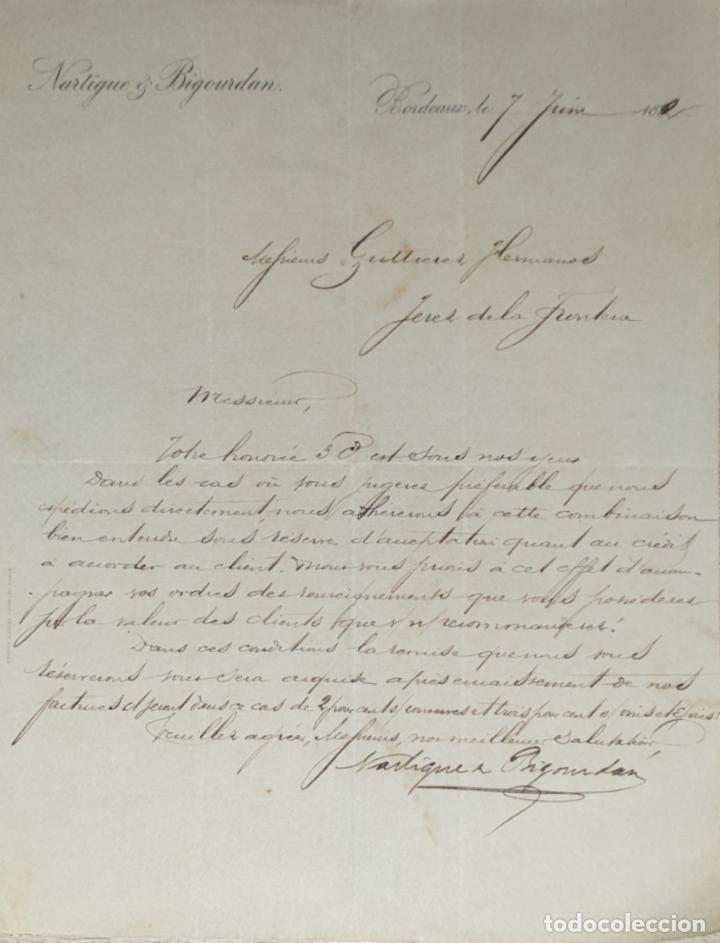 Nartigue & Bigourdan.
Bordeaux, le 7 Juin 188
Messieurs Guttierez Hermanos
Jerez de la Frontera
Messieurs,
Votre honorée 3 Ct est sous nos yeux
Dans les cas où vous jugerez préférable que nous
expédions directement nous adhérerons à cette combinaison
bien entendu sous réserve d'acceptation quant au crédit
à accorder au client. Nous vous prions à cet effet d'accom-
pagner vos ordres des renseignements que vous possèderez
sur la valeur des clients que recommanderez.
Dans ces conditions la remise que nous vous
réserverons vous sera acquise après encaissement de nos
factures et serait dans ce cas de 2 pour cent s/ conserves et trois pour cent s/ vins et
Veuillez agréer, Messieurs, nos meilleures salutations
Nartigue & Bigourdan
todocoleccion